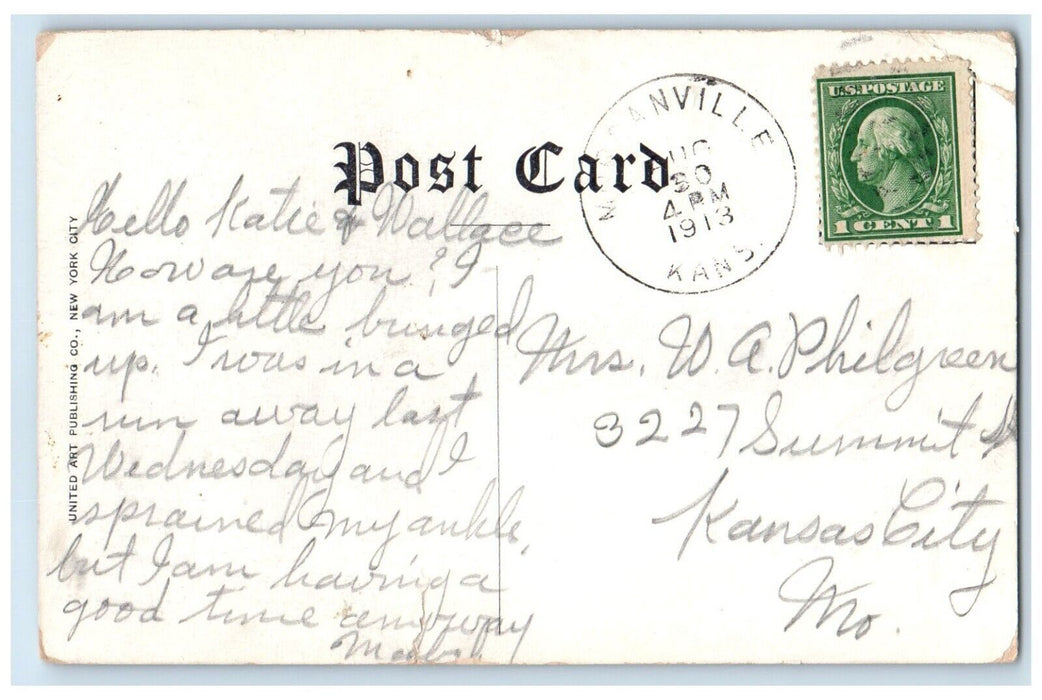 Post Card
M GANVILLE
UG
30
4 PM
1913
KANS.
U.S. POSTAGE
1 CENT 1
UNITED ART PUBLISHING CO., NEW YORK CITY
Hello Katie & Wallace
How are you? I
am a little bunged
up. I was in a
run away last
Wednesday and I
sprained my ankle,
but I am having a
good time anyway
Mrs. W. A. Philgreen
3227 Summit St
Kansas City
Mo.